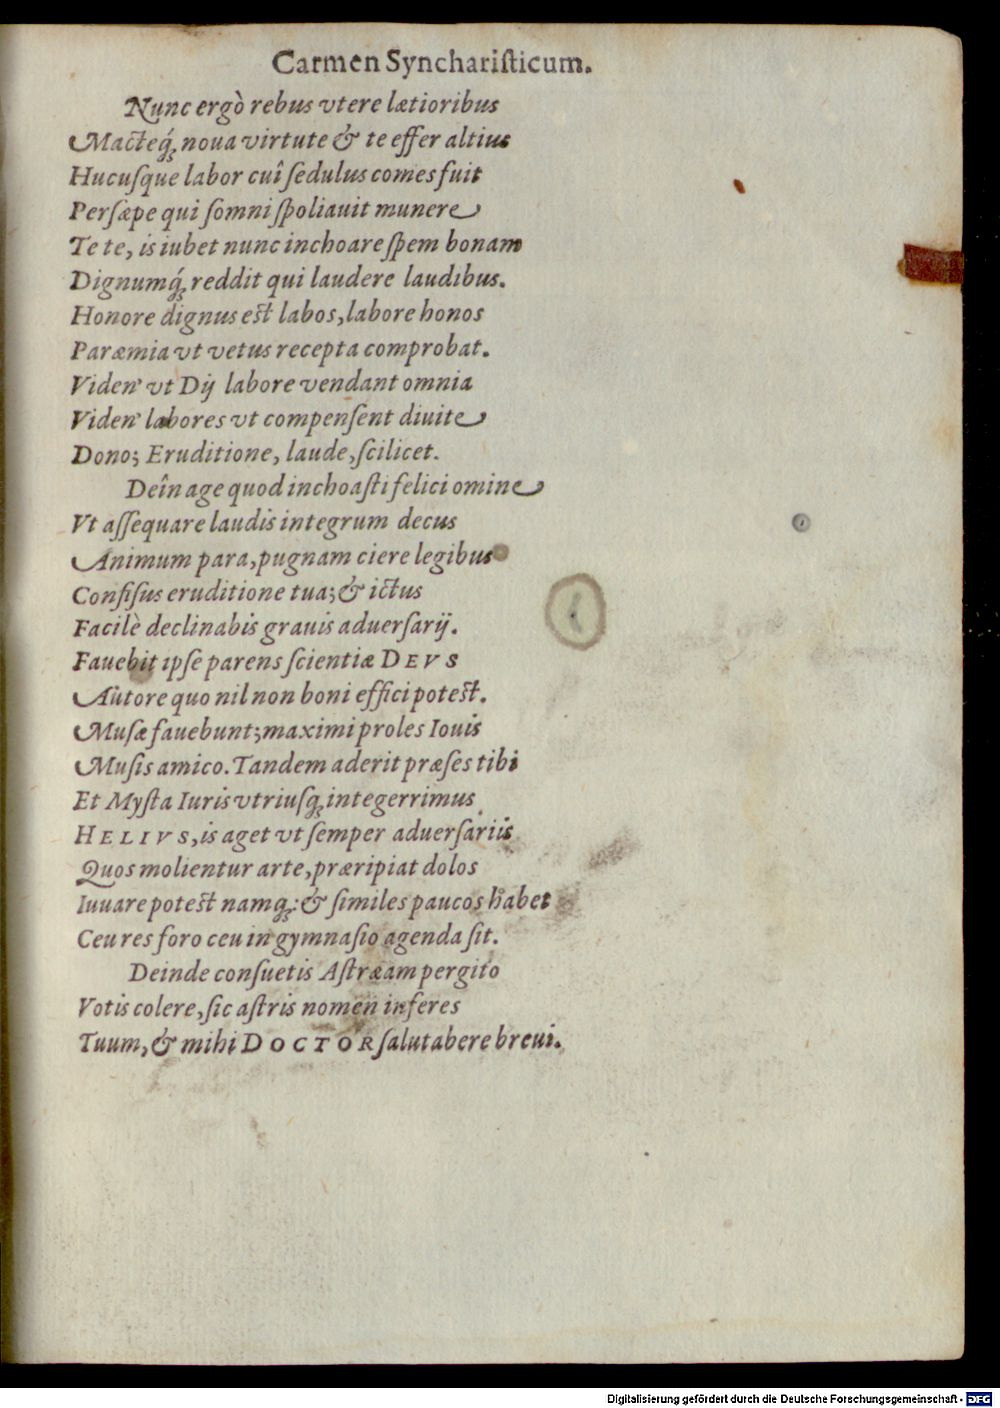 Carmen Syncharisticum.
Nunc ergò rebus vtere lætioribus
Macteq́ꝫ noua virtute & te effer altius
Hucuſque labor cuî ſedulus comes fuit
Perſæpe qui ſomni ſpoliauit munere
Te te, is iubet nunc inchoare ſpem bonam
Dignumq́ꝫ reddit qui laudere laudibus.
Honore dignus eſt labos, labore honos
Paræmia vt vetus recepta comprobat.
Viden' vt Dij labore vendant omnia
Viden' labores vt compenſent diuite
Dono; Eruditione, laude, ſcilicet.
Deîn age quod inchoaſti felici omine
Vt aſſequare laudis integrum decus
Animum para, pugnam ciere legibus
Confiſus eruditione tua; & ictus
Facilè declinabis grauis aduerſarij.
Fauebit ipſe parens ſcientiæ DEVS
Autore quo nil non boni effici poteſt.
Muſæ fauebunt; maximi proles Iouis
Muſis amico. Tandem aderit præſes tibi
Et Myſta Iuris vtriuſqꝫ integerrimus
HELIVS, is aget vt ſemper aduerſariis
Quos molientur arte, præripiat dolos
Iuuare poteſt namqꝫ: & ſimiles paucos habet
Ceu res foro ceu in gymnaſio agenda ſit.
Deinde conſuetis Aſtræam pergito
Votis colere, ſic aſtris nomen inferes
Tuum, & mihi DOCTOR ſalutabere breui.
Digitalisierung gefördert durch die Deutsche Forschungsgemeinschaft - DFG